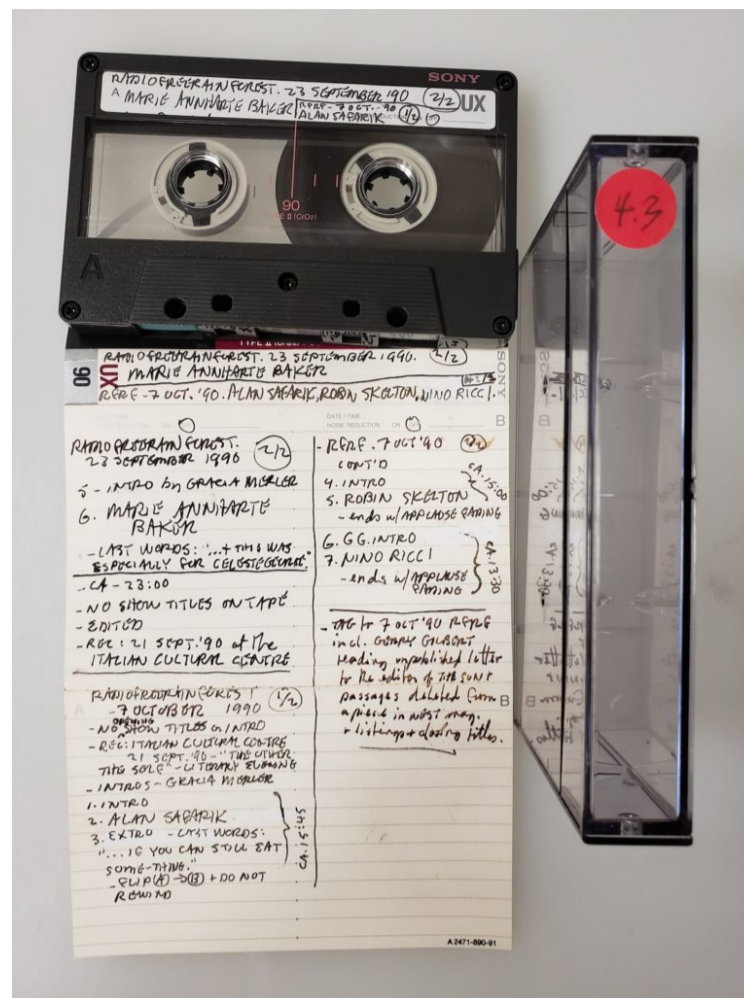 SONY
RADIOFREERAINFOREST. 23 SEPTEMBER '90 2/2 UX
A MARIE ANNHARTE BAKER RFRF - 7 OCT. - 90 1/2
ALAN SAFARIK
90
TYPE II (CrO2)
A
4.3
90 UX
RADIOFREERAINFOREST. 23 SEPTEMBER 1990. 2/2
MARIE ANNHARTE BAKER
RFRF - 7 OCT. '90. ALAN SAFARIK, ROBIN SKELTON, NINO RICCI.
SONY
DATE / TIME:
NOISE REDUCTION ON OFF
B
RADIOFREERAINFOREST.
23 SEPTEMBER 1990 2/2
5 - INTRO by GRACIA MERLER
6. MARIE ANNHARTE
BAKER
- LAST WORDS: "...+ THIS WAS
ESPECIALLY FOR CELESTE GEORGE."
- CA - 23:00
- NO SHOW TITLES ON TAPE
- EDITED
- REC: 21 SEPT. '90 at the
ITALIAN CULTURAL CENTRE
RADIOFREERAINFOREST 1/2
- 7 OCTOBER 1990
- NO OPENING SHOW TITLES or INTRO
- REC: ITALIAN CULTURAL CENTRE
21 SEPT. '90 - "THE OTHER
THE SELF" - LITERARY EVENING
- INTROS - GRACIA MERLER
1. INTRO
2. ALAN SAFARIK
3. EXTRO - LAST WORDS:
"...IF YOU CAN STILL EAT
SOME-THING."
CA. 15:45
- FLIP (A) → (B) + DO NOT
REWIND
- RFRF. 7 OCT '90 2/2
CONT'D
4. INTRO
5. ROBIN SKELTON
- ends w/ APPLAUSE FADING
CA. 15:00
6. GG. INTRO
7. NINO RICCI
- ends w/ APPLAUSE
FADING
CA. 13:30
- TAG to 7 OCT '90 RFRF
incl. GERRY GILBERT
reading unpublished letter
to the editor of THE SUN +
passages deleted from
a piece in WEST mag.
+ listings + closing titles.
B
A 2471-890-91